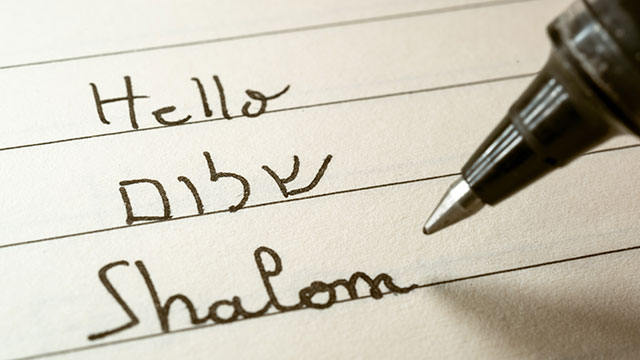 Hello
שלום
Shalom